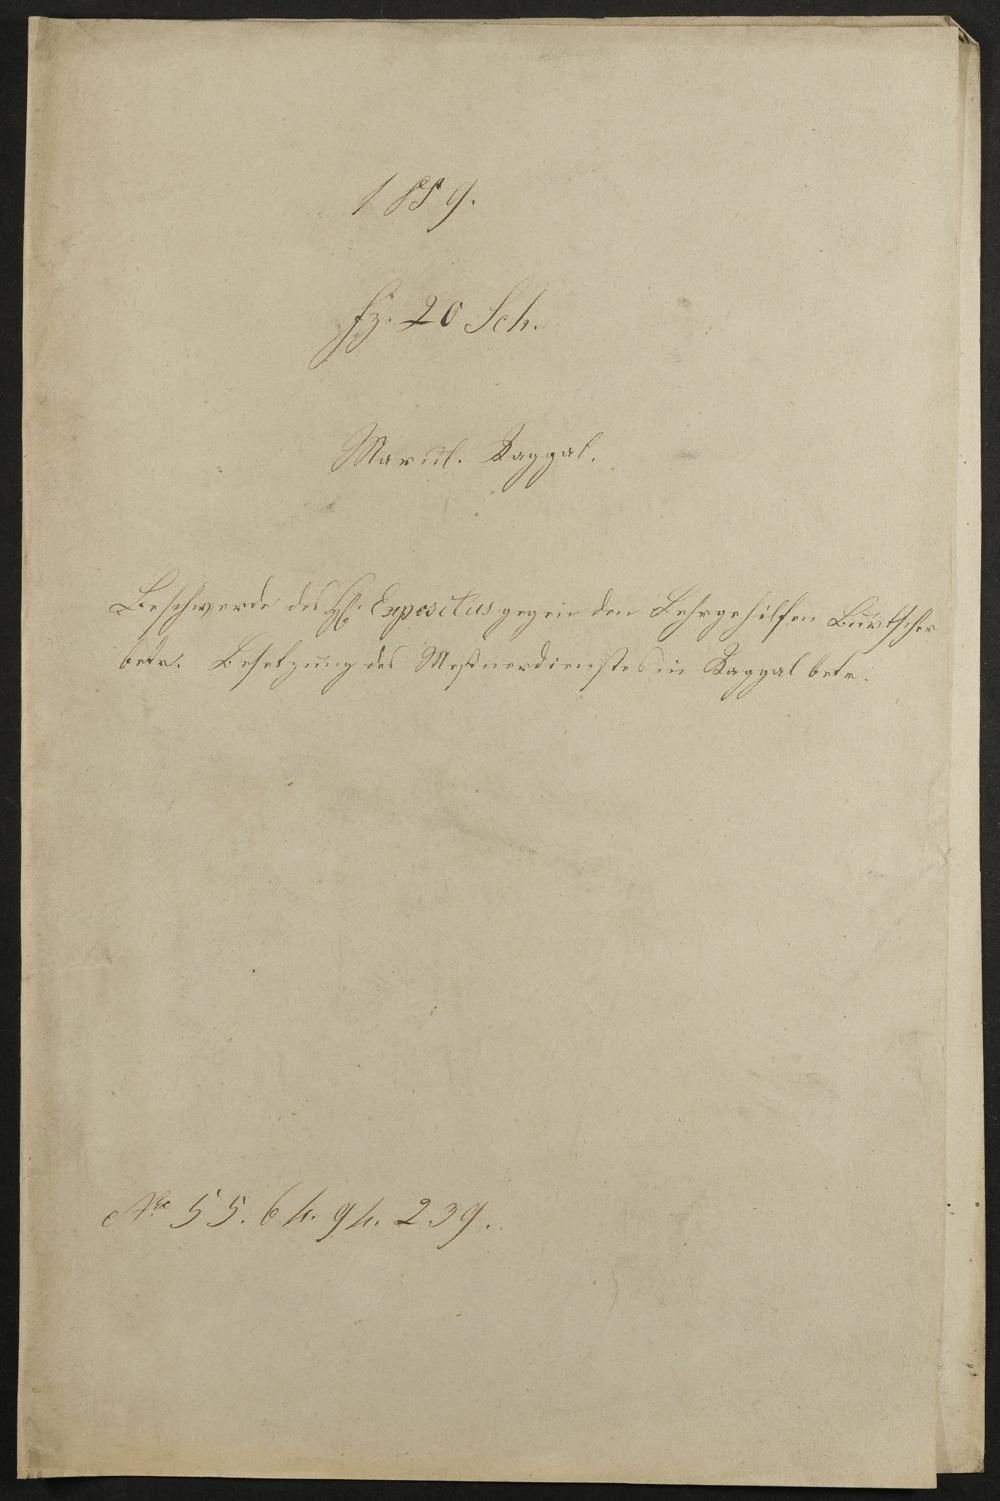 1889.
Fz. 20 Sch.
Marul. Raggal.
Beschwerde des H. Expositus gegen den Lehrgehilfen Burtscher
betr. Besetzung des Meßnerdienstes in Raggal betr.
No 55. 64. 94. 239.